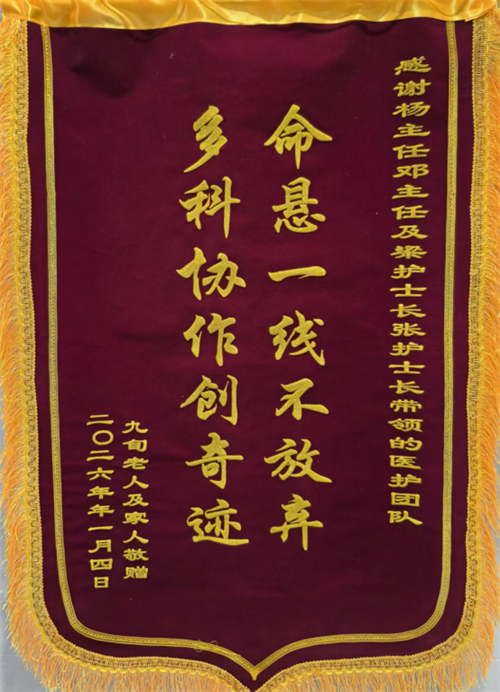 感谢杨主任邓主任及梁护士长张护士长带领的医护团队
命悬一线不放弃
多科协作创奇迹
九旬老人及家人敬赠
二〇二六年年一月四日